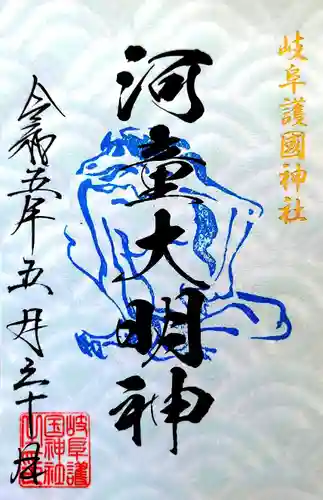 岐阜護國神社
河童大明神
令和五年五月三十一日拝
岐阜護
国神社